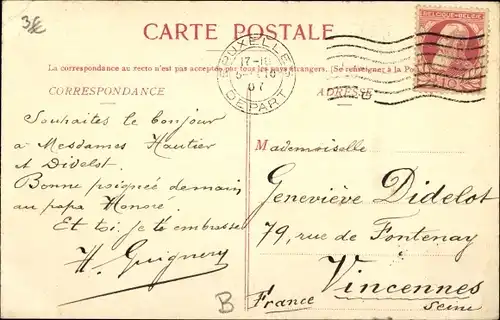 3€
CARTE POSTALE
BELGIQUE-BELGIË
BRUXELLES
17-18
07
DEPART
10
La correspondance au recto n'est pas acceptée par tous les pays étrangers. (Se renseigner à la Poste
CORRESPONDANCE
ADRESSE
Souhaites le bonjour
à Mesdames Hautier
et Didelot.
Bonne poignée de main
au papa Honoré.
Et toi je te embrasse
H. Guignery
Mademoiselle
Geneviève Didelot
79, rue de Fontenay
Vincennes
Seine
France
B